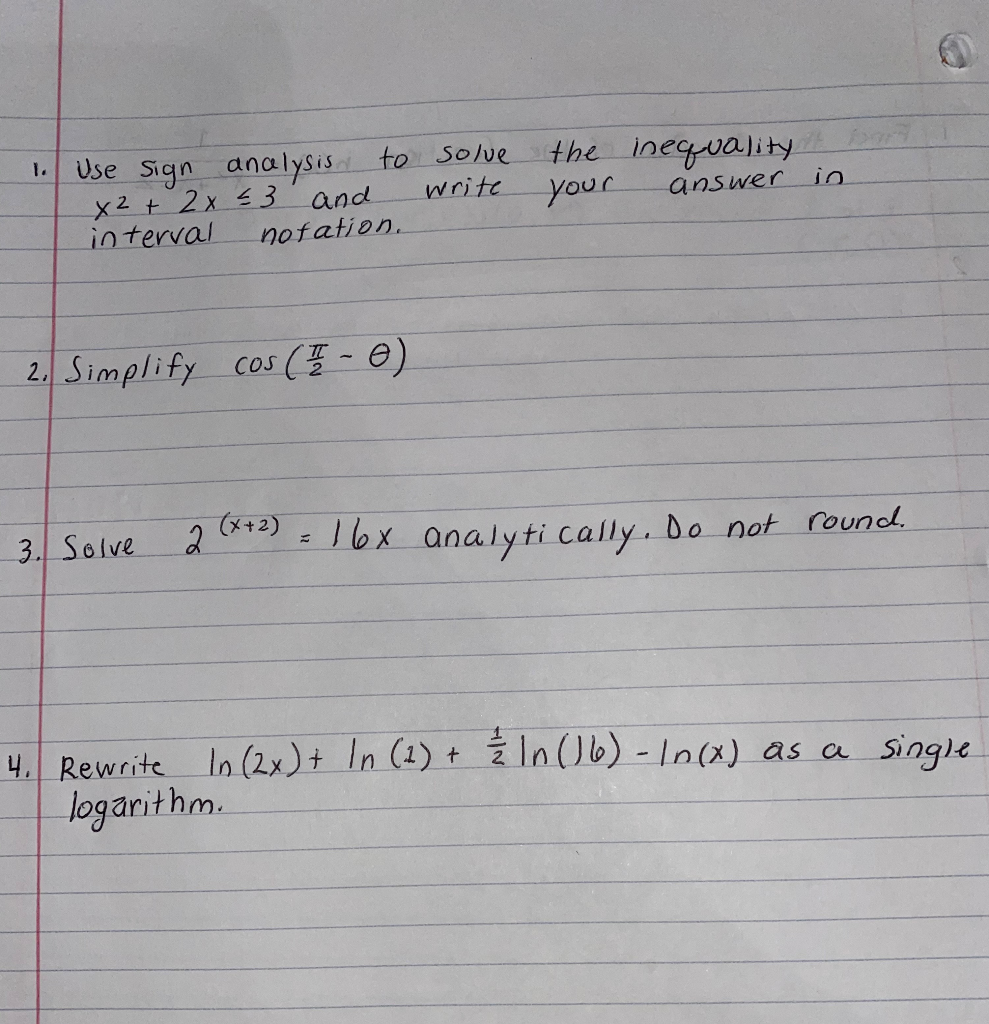 1. Use sign analysis to solve the inequality
x2 + 2x ≤ 3 and write your answer in
interval notation.
2. Simplify cos(π/2 - θ)
3. Solve 2^(x+2) = 16x analytically. Do not round.
4. Rewrite ln(2x) + ln(1) + 1/2 ln(16) - ln(x) as a single
logarithm.